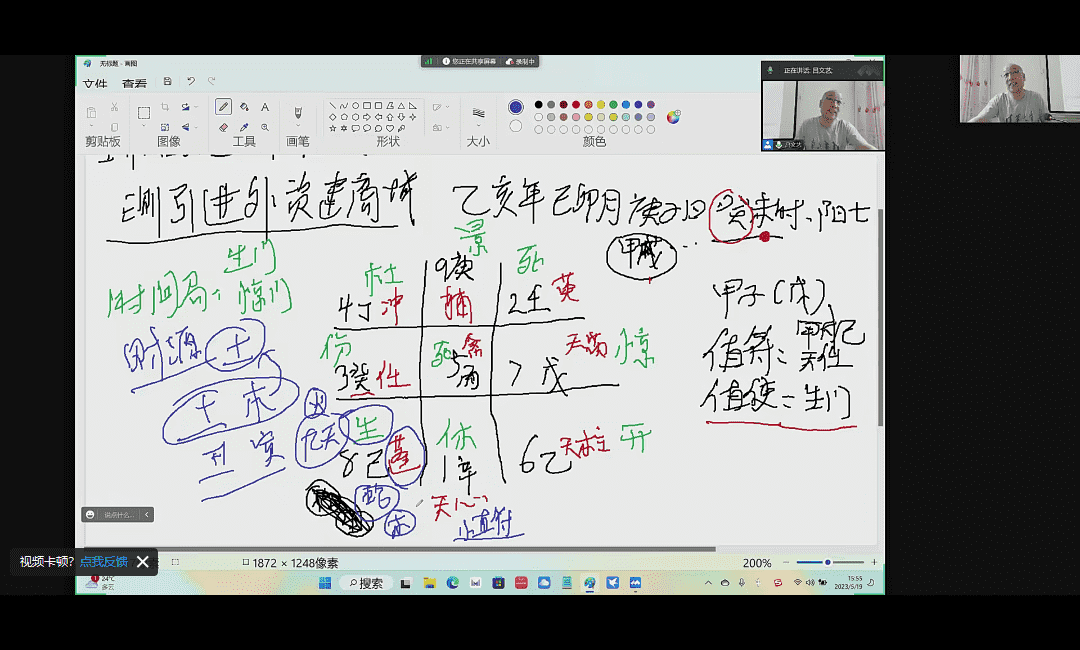 无标题 - 画图
您正在共享屏幕
录制中
文件 查看
正在讲话: 吕文艺
剪贴板
图像
工具
画笔
形状
大小
颜色
引进外资建商城
乙亥年己卯月庚子日
未时、阳七
甲戌
生门
时间局、惊门
景
杜
9庚
死
4丁
冲
辅
2壬
英
伤
死
禽
惊
3癸
任
5丙
7戊
生
休
开
8己
1辛
6乙
天柱
九天
蛇
天心
直符
土
寅
甲子(戊)
值符:
天任
值使=生门
说点什么...
视频卡顿? 点我反馈
1872 × 1248像素
200%
24°C
多云
搜索
15:55
2023/5/19